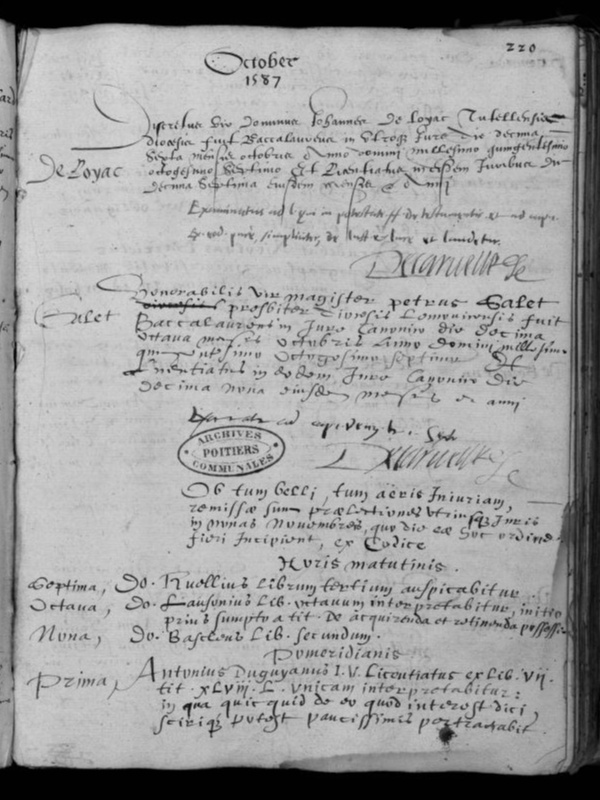 220
October
1587
Discretus vir dominus Johannes de Loyac Tutellensis
diocesis fuit Baccalaureus in utroq Jure die decima
De Loyac
sexta mensis octobris Anno domini millesimo quingentesimo
octogesimo septimo Et Licentiatus in eisdem Juribus die
decima septima eiusdem mensis & anni
Examinatus ad
pure, simpliciter, de et laudetur.
Honorabilis vir magister petrus Galet
presbiter diocesis Lemovicensis fuit
Galet
Baccalaureus in Jure Canonico die decima
octava mensis octobris Anno domini millesimo
quingentesimo octogesimo septimo Et
Licentiatus in eodem Jure Canonico die
decima nona eiusdem mensis et anni
ARCHIVES
POITIERS
COMMUNALES
Ob tum belli, tum aëris Iniuriam,
remissæ sunt prælectiones utriusq Juris
in nonas Novembres, quo die eæ hoc ordine
fieri Incipient, ex Codice
Horis matutinis.
Septima, Do. Ruellius Librum tertium auspicabitur.
Octava, Do. Lausonius Lib. octavum interpretabitur, initio
prius sumpto a tit. De acquirenda et retinenda possessi
Nona, Do. Bascheus Lib. secundum.
Pomeridianis
Prima, Antonius Duguyanus I. V. Licentiatus ex Lib. VII.
tit. XLVIII. L. Unicam interpretabitur:
in qua quic quid de eo quod interest dici,
sciriq potest paucissimis pertractabit.